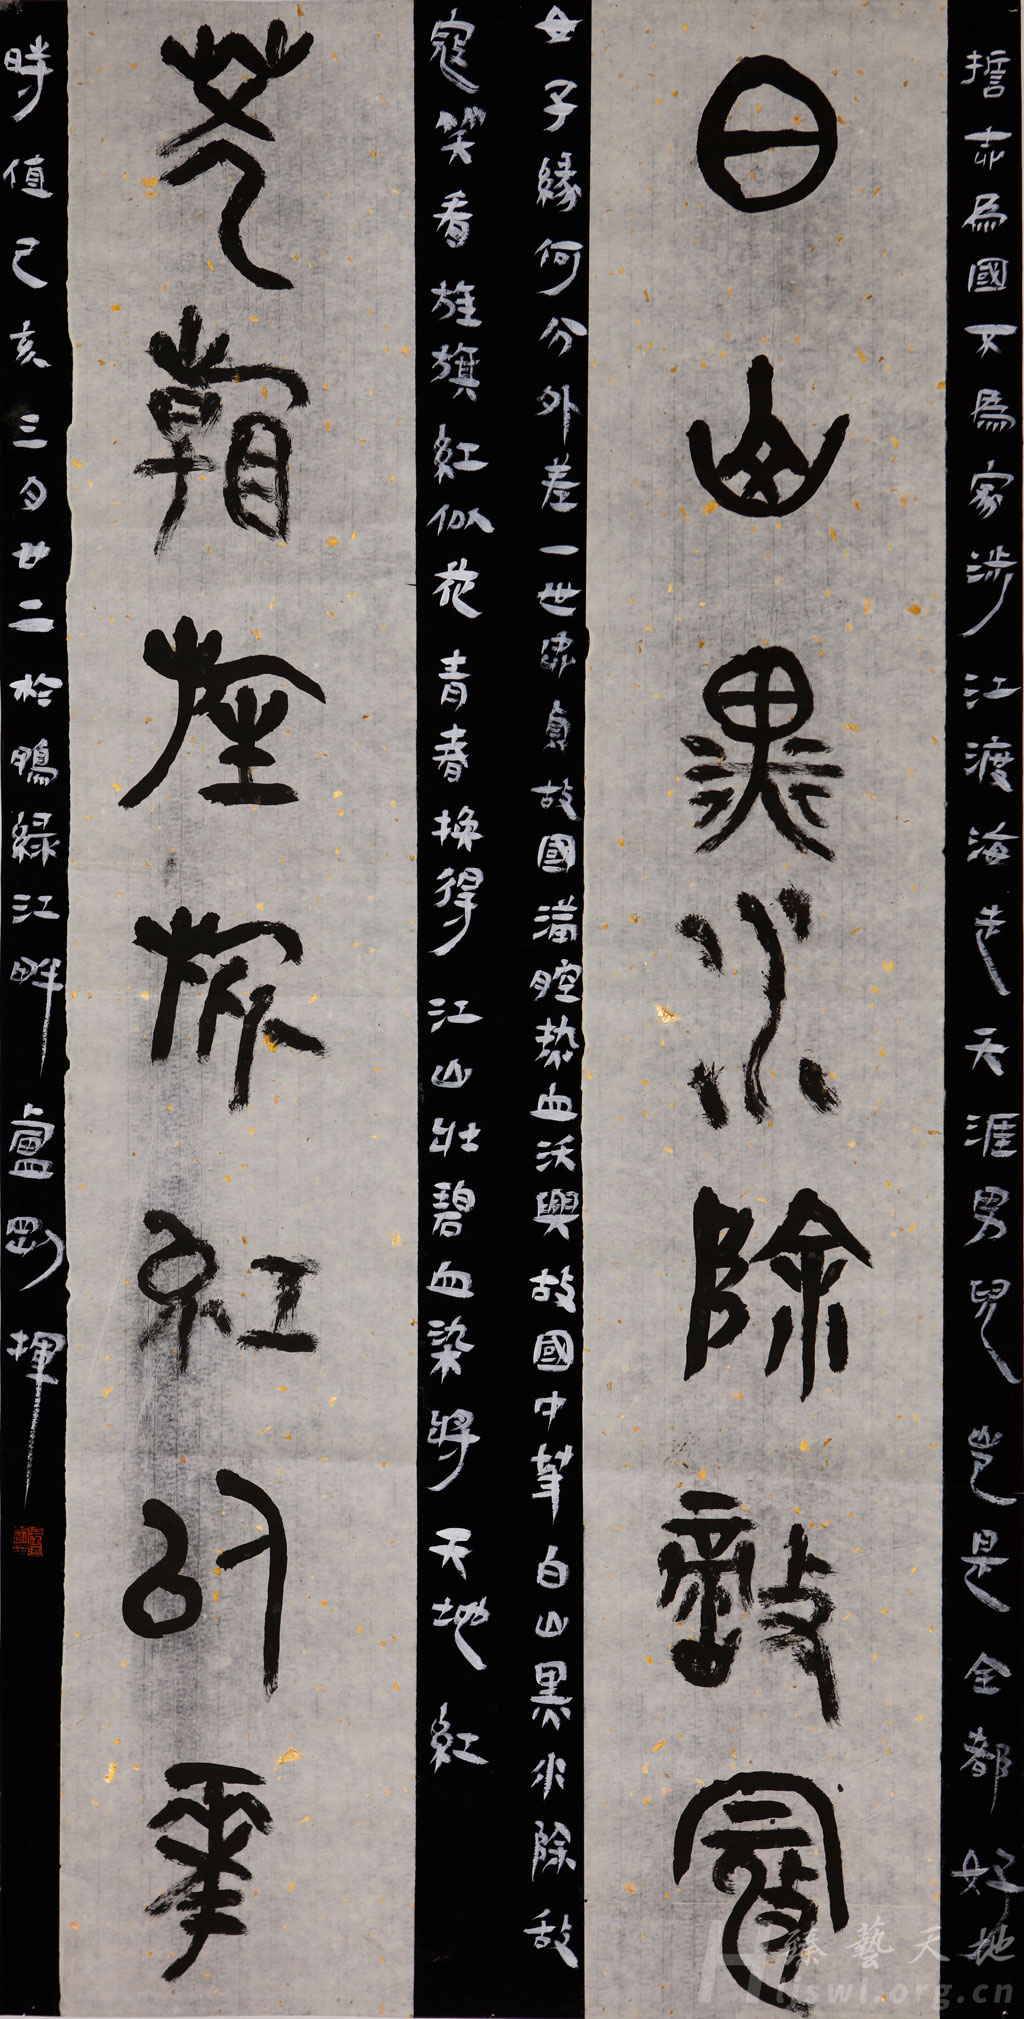 誓志為國不為家涉江渡海走天涯男兒豈是全都好
白山黑水除敵寇
女子緣何分外差一世忠貞故國滿腔熱血沃興故國中華白山黑水除敵
寇笑看旌旗紅似花青春換得江山壯碧血染將天地紅
笑看旌旗紅似花
時值己亥三月廿二於鴨綠江畔盧剛揮
臻藝天地